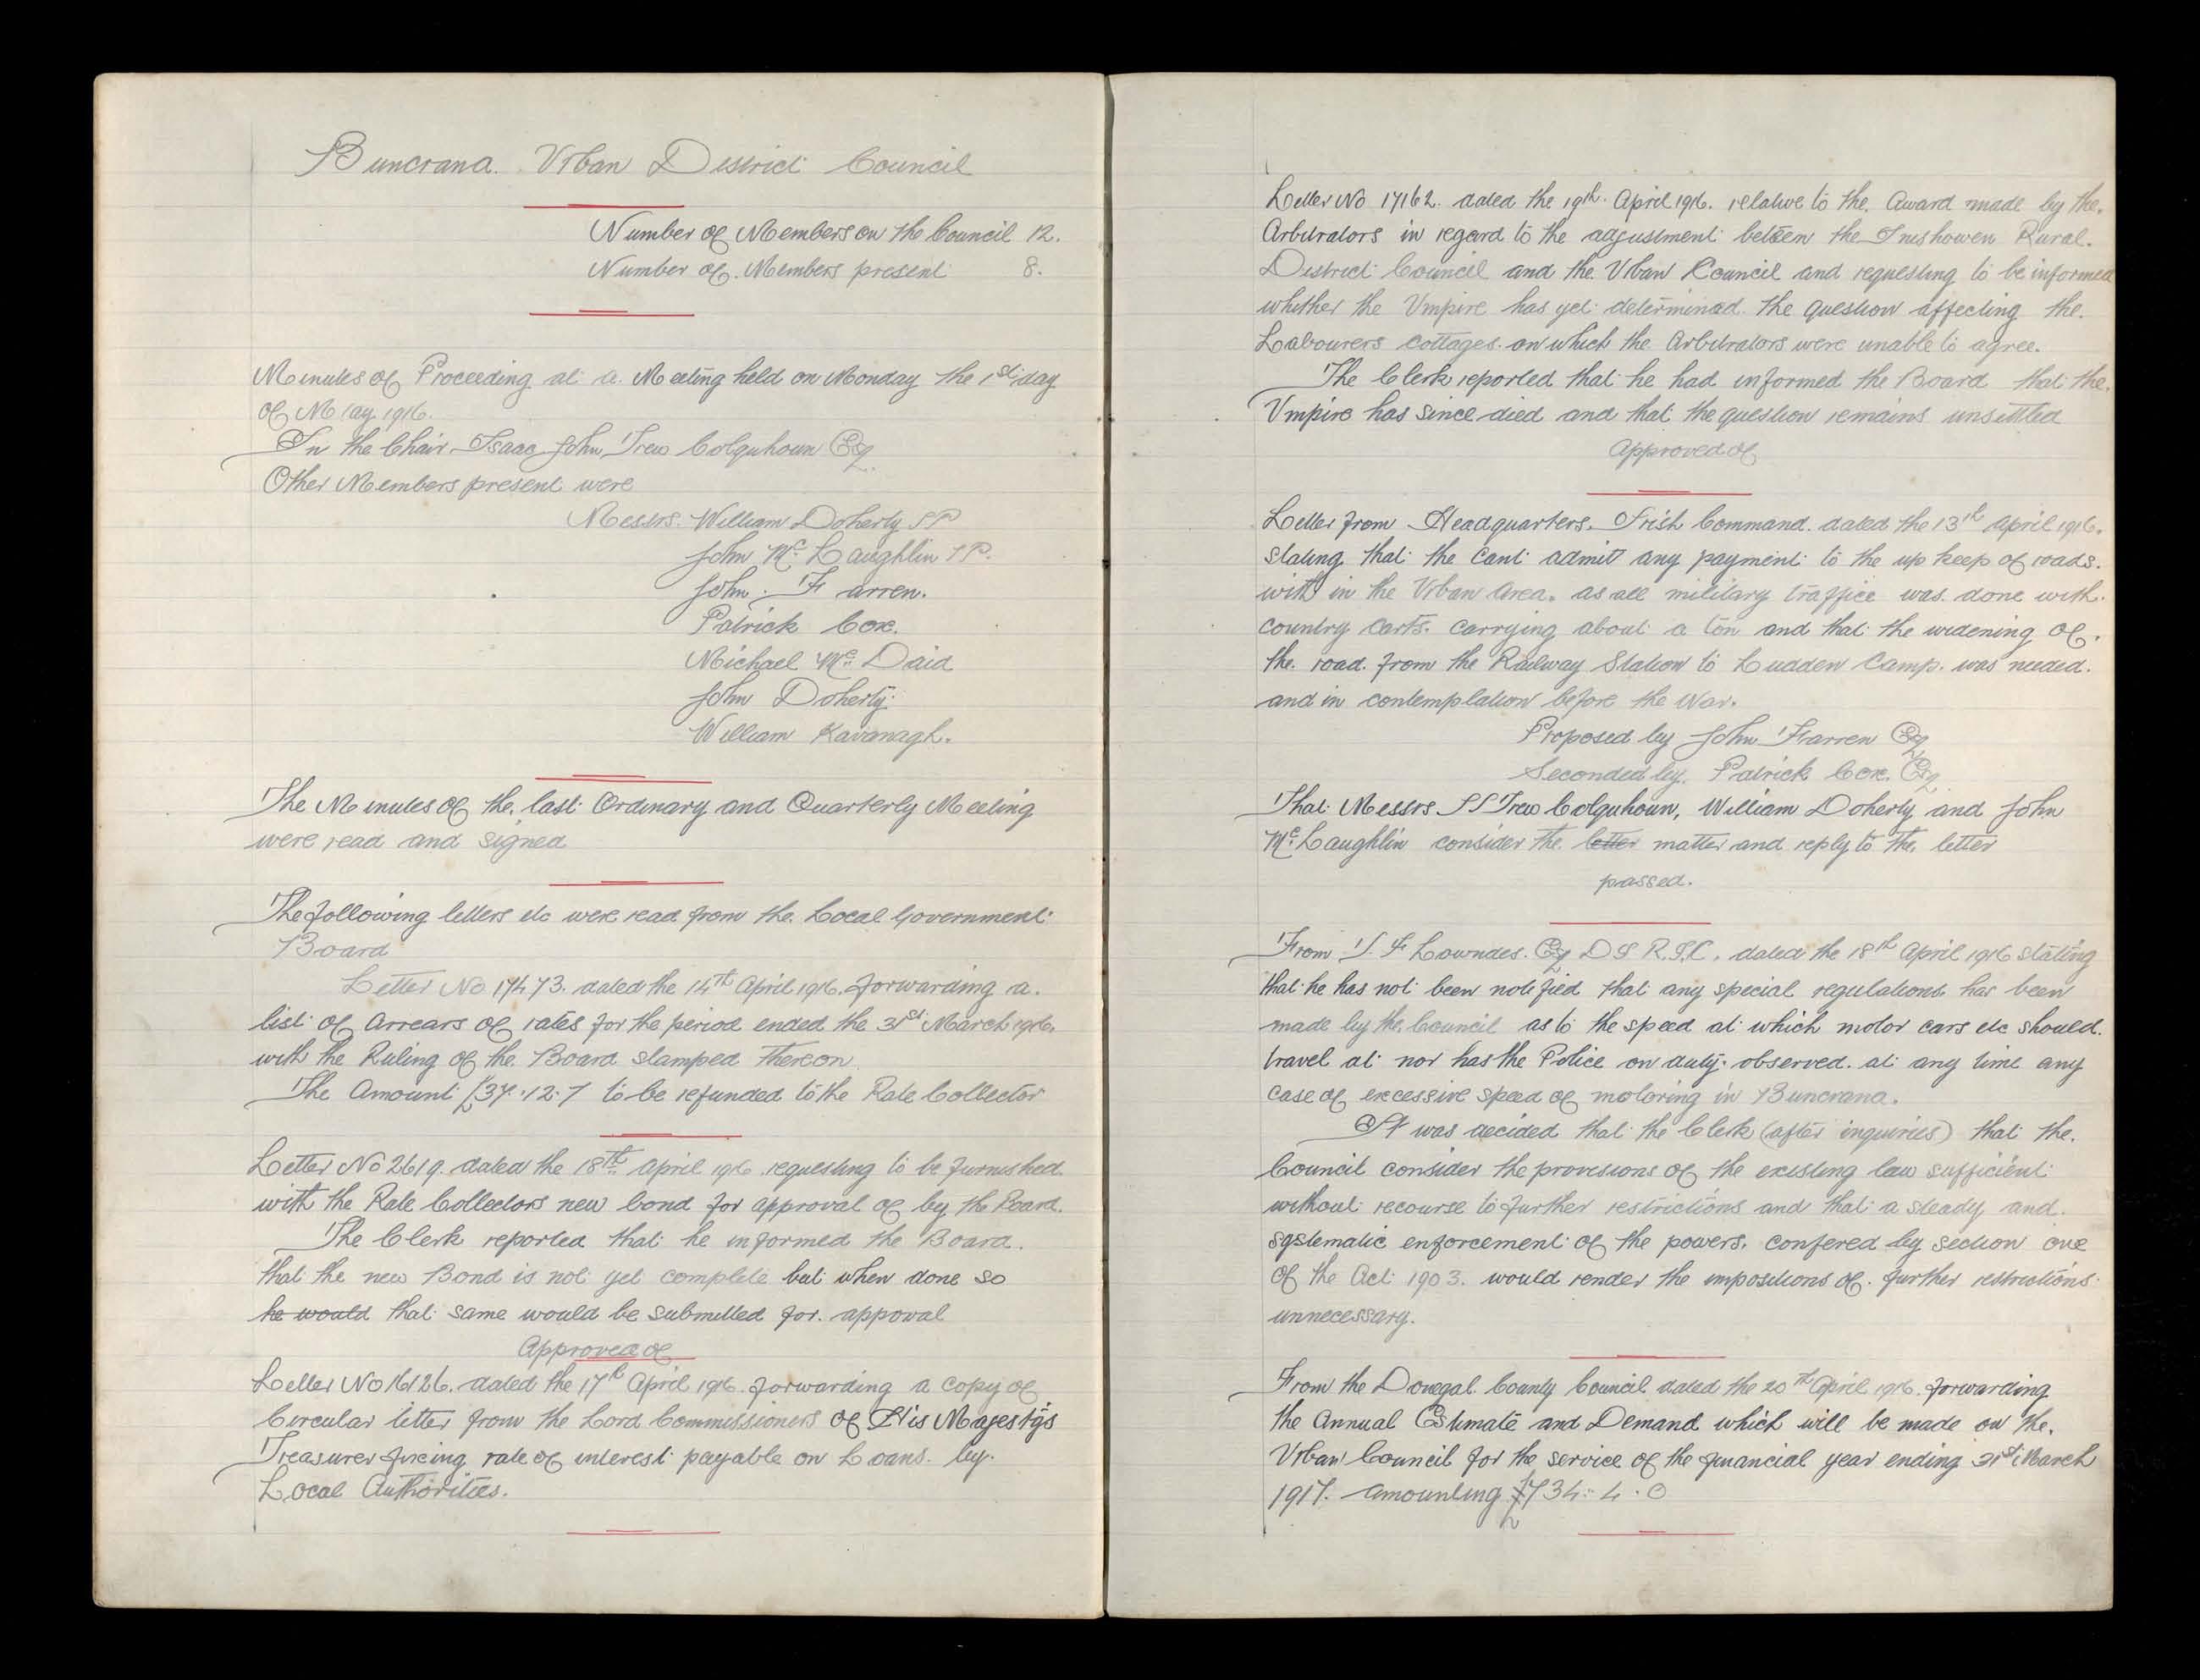 Buncrana Urban District Council
Number of Members on the Council 12.
Number of Members present 8.
Minutes of Proceeding at a Meeting held on Monday the 1st day
of May 1916.
In the Chair Isaac John Trew Colquhoun Esq.
Other Members present were
Messrs. William Doherty J P
John Mc Laughlin J P.
John Farren.
Patrick Cox.
Michael Mc Daid
John Doherty
William Kavanagh.
The Minutes of the last Ordinary and Quarterly Meeting
were read and signed
The following letters etc were read from the Local Government
Board
Letter No 17473. dated the 14th April 1916. forwarding a
list of Arrears of rates for the period ended the 31st March 1916.
with the Ruling of the Board stamped thereon
The Amount £37.12.7 to be refunded to the Rate Collector
Letter No 2619. dated the 18th April 1916 requesting to be furnished
with the Rate Collectors new bond for approval of by the Board.
The Clerk reported that he informed the Board.
that the new Bond is not yet complete but when done so
he would that same would be submitted for appoval
Approved of
Letter No 16126. dated the 17th April 1916. forwarding a copy of
Circular letter from the Lord Commissioners of His Majesty's
Treasurer fixing rate of interest payable on Loans. by.
Local Authorities.
Letter No 17162. dated the 19th April 1916. relative to the Award made by the.
Arbitrators in regard to the adjustment beteen the Inishowen Rural.
District Council and the Urban Council and requesting to be informed
whether the Umpire has yet determined the question affecting the.
Labourers cottages on which the Arbitrators were unable to agree.
The Clerk reported that he had informed the Board that the.
Umpire has since died and that the question remains unsettled
Approved of
Letter from Headquarters. Irish Command. dated the 13th April 1916.
stating that the cant admit any payment to the up keep of roads.
with in the Urban Area. as all military traffice was done with.
country carts. carrying about a ton and that the widening of.
the road from the Railway Station to Ludden Camp. was needed.
and in contemplation before the War.
Proposed by John Farren Esq
Seconded by. Patrick Cox. Esq
That Messrs I J Trew Colquhoun, William Doherty and John
Mc Laughlin consider the letter matter and reply to the letter
passed.
From F Lowndes. Esq D I R.I.C. dated the 18th April 1916 stating
that he has not been notified that any special regulations has been
made by the Council as to the speed at which motor cars etc should.
travel at nor has the Police on duty observed at any time any
case of excessive speed of motoring in Buncrana.
It was decided that the Clerk (after inquiries) that the.
Council consider the provisions of the existing law sufficient
without recourse to further restrictions and that a steady and.
systematic enforcement of the powers. confered by section one
of the Act 1903. would render the impositions of further restrictions
unnecessary.
From the Donegal County Council dated the 20th April 1916. forwarding
the Annual Estimate and Demand which will be made on the.
Urban Council for the service of the financial year ending 31st March
1917. amounting £734.4.0